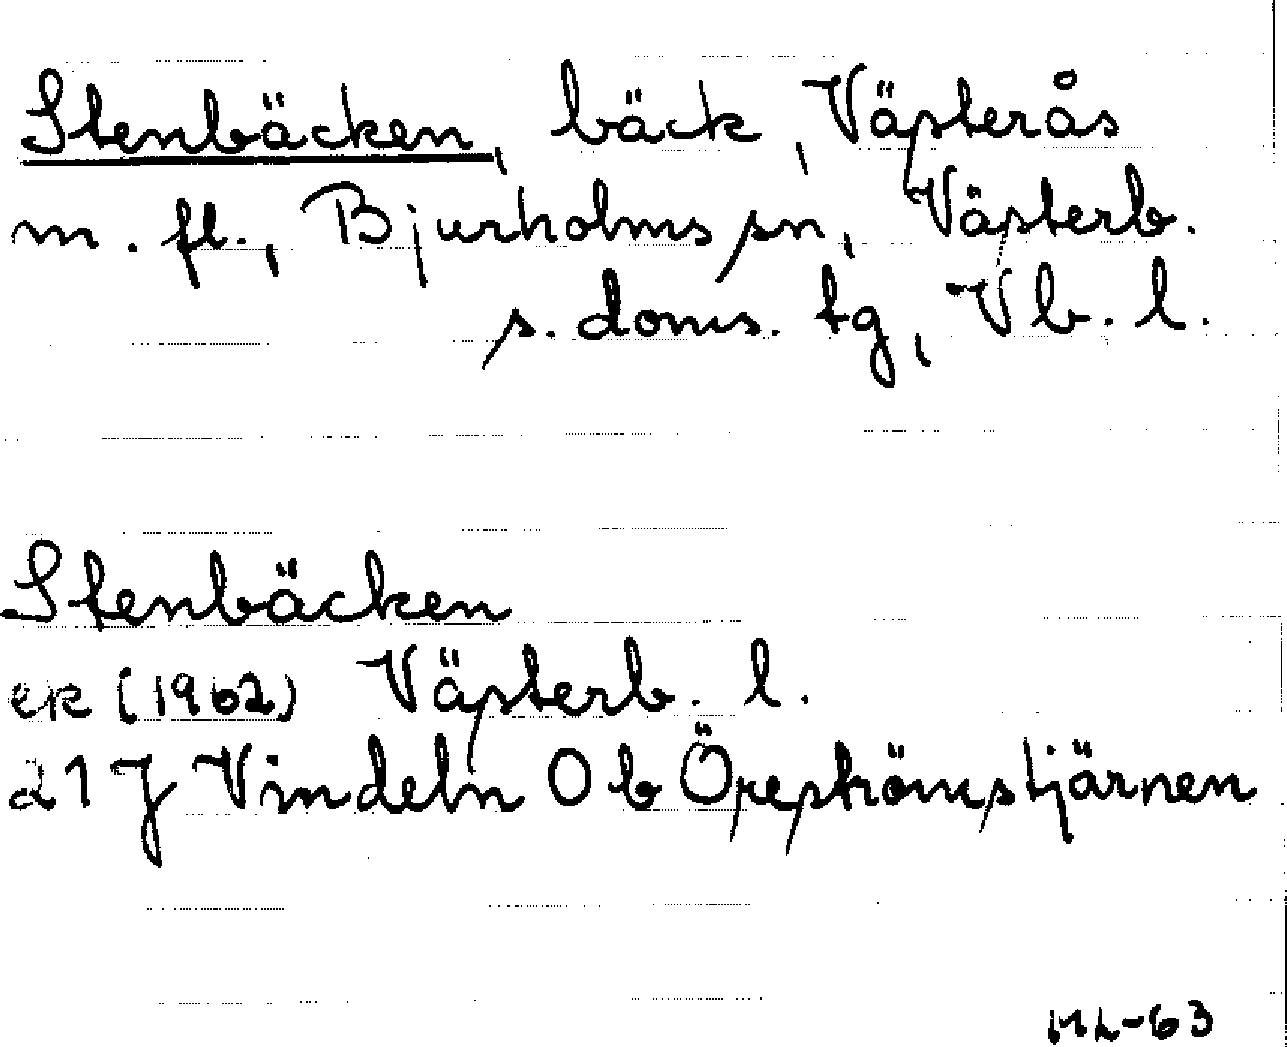 Stenbäcken, bäck, Västerås
m. fl., Bjurholms sn, Västerb.
s. doms. tg, Vb. l.
Stenbäcken
ek (1962) Västerb. l.
21 J Vindeln 0 b Öreströmstjärnen
ML-63